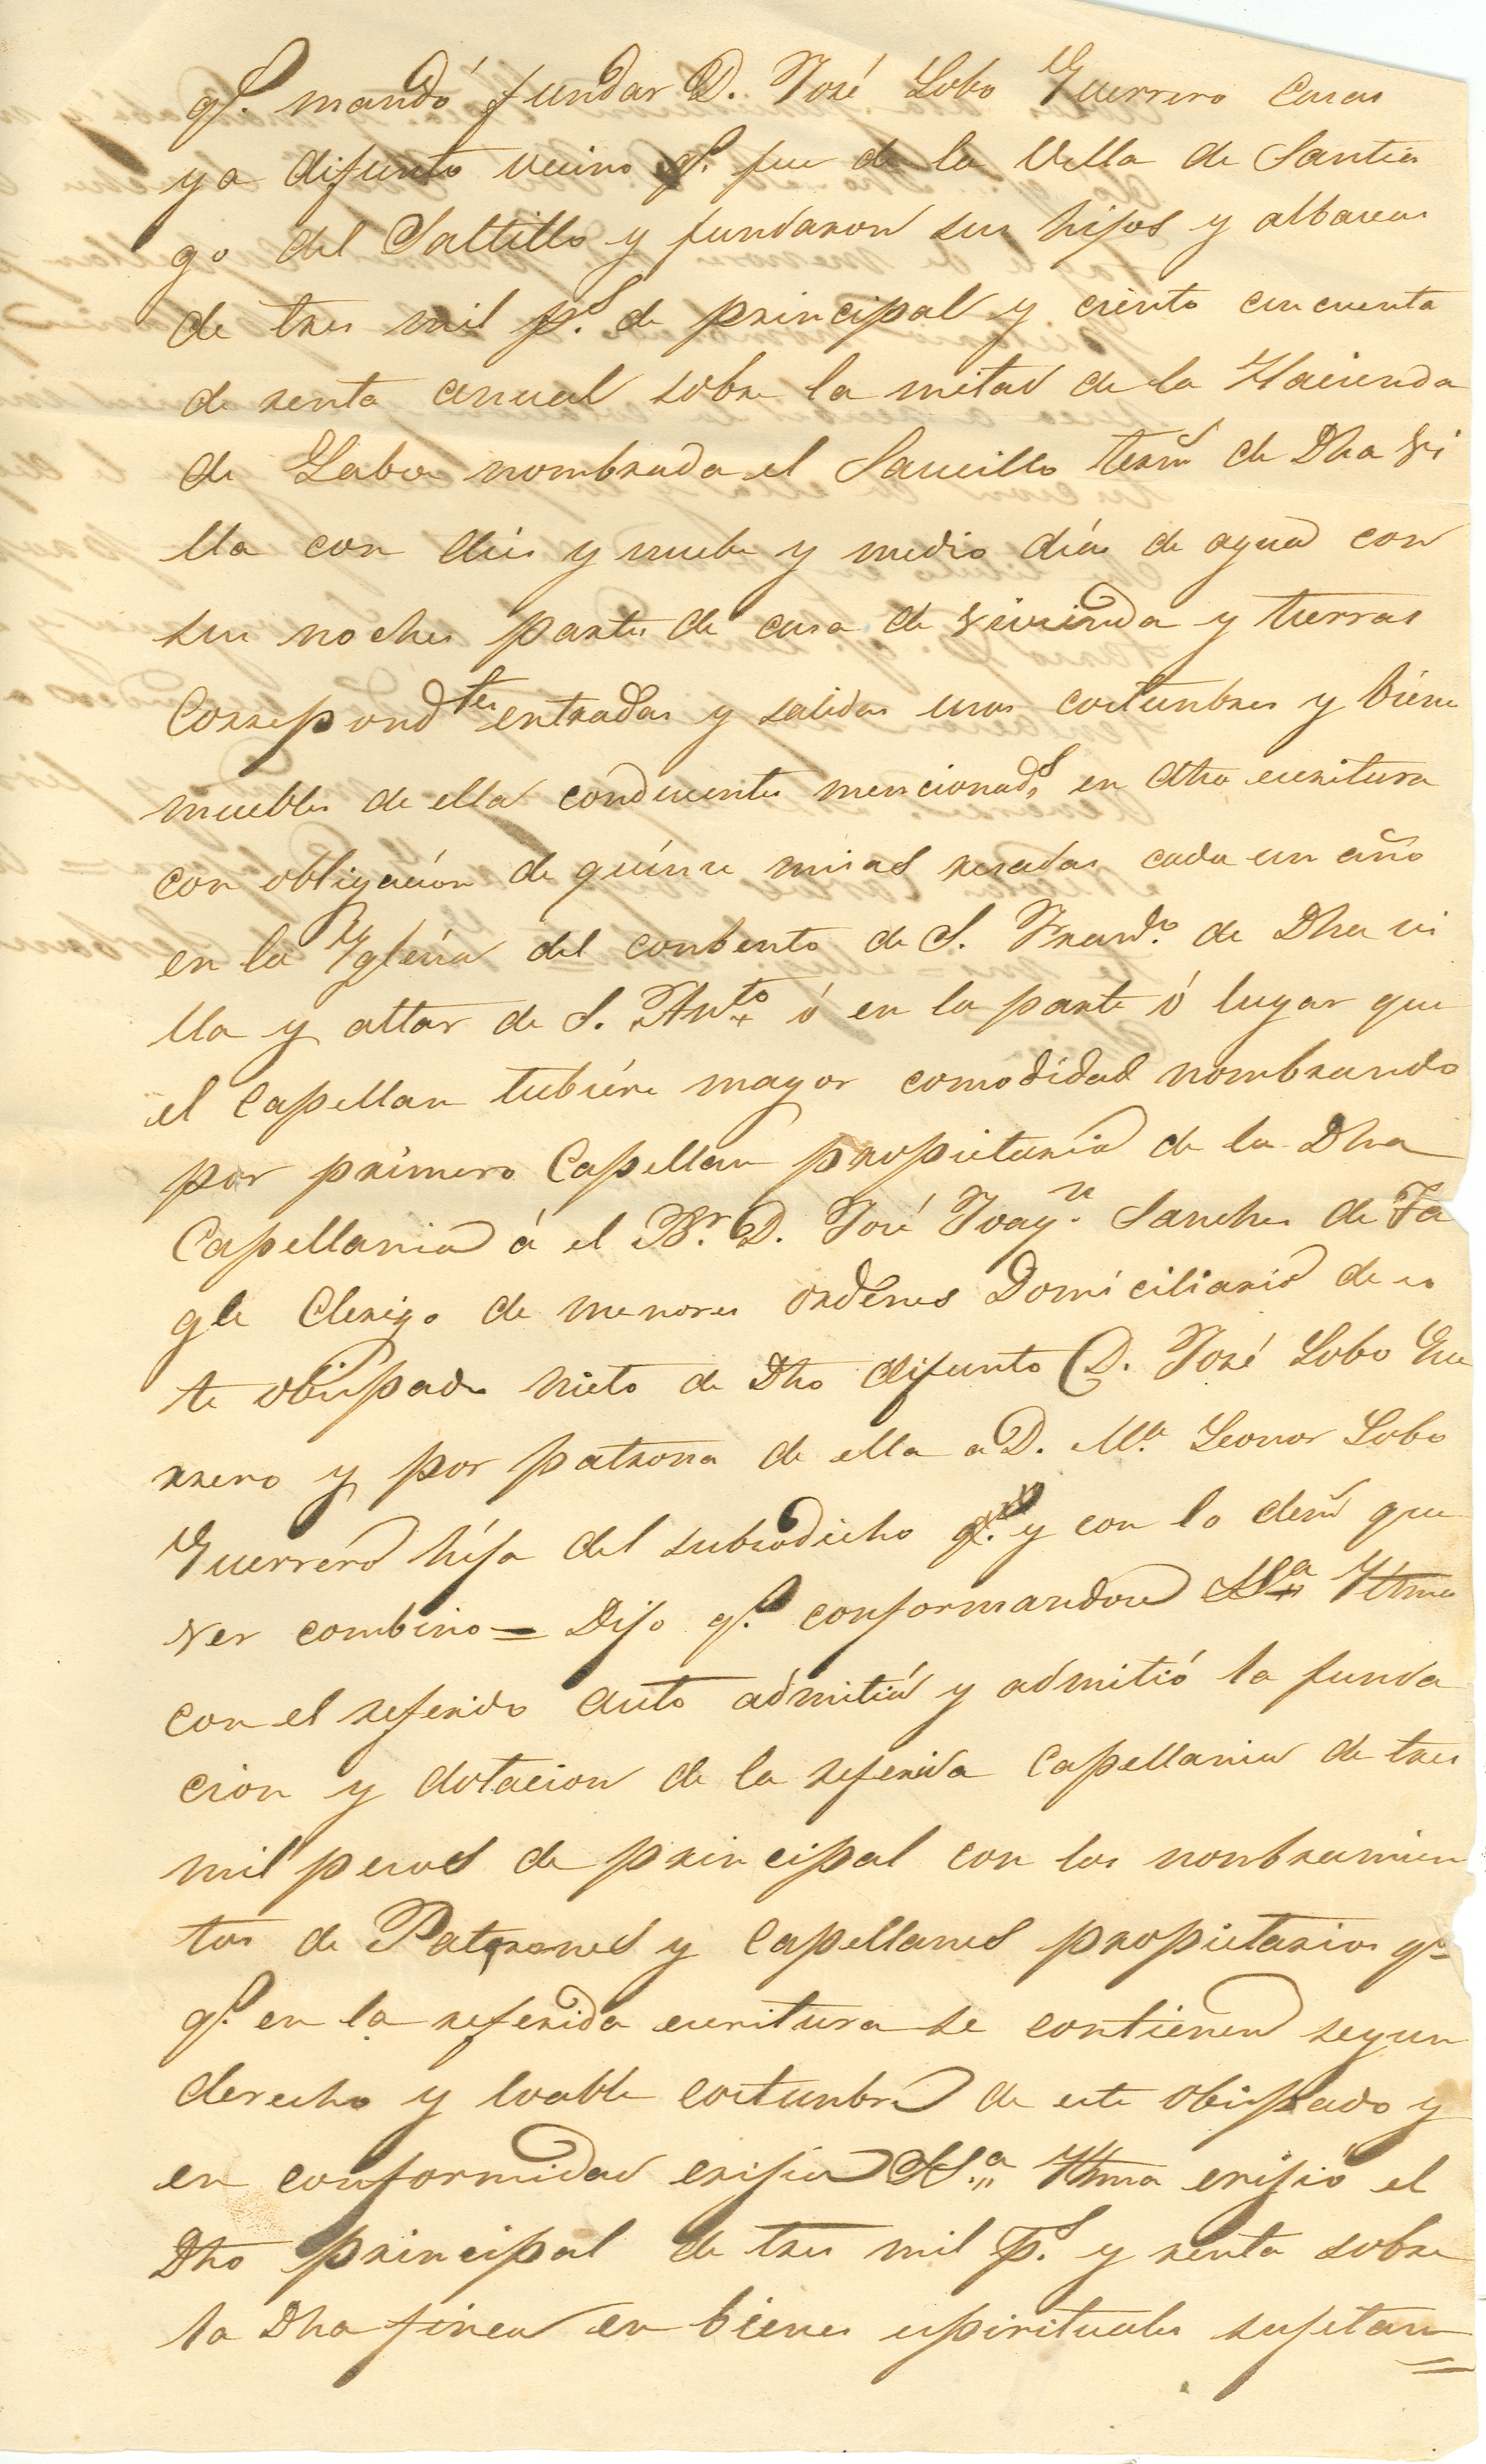 qᵉ. mandó fundar D. José Lobo Guerrero Casas
ya difunto vecino qᵉ. fue de la Villa de Santia
go del Saltillo y fundaron sus hijos y albaceas
de tres mil pˢ. de principal y ciento cincuenta
de renta anual sobre la mitad de la Hacienda
de Labor nombrada el Saucillo termº de Dha Vi
lla con diez y nuebe y medio días de agua con
sus noches partes de casa de vivienda y tierras
Correspondᵗᵉˢ entradas y salidas usos costunbres y biene
muebles de ella conducentes mencionadˢ. en dha escritura
con obligación de quínse misas resadas cada un año
en la Yglesia del conbento de S. Franᶜᵒ. de Dha vi
lla y altar de S. Antᵒ ó en la parte ó lugar que
el Capellan tubiére mayor comodidad nombrando
por primero Capellan propietario de la Dha
Capellania á el Bʳ. D. José Joaqⁿ. Sanches de Ta
gle Clerigo de menores ordenes Domiciliario de es
te obispado nieto de Dho difunto D. José Lobo Gue
rrero y por patrona de ella a D. Mᵃ Leonor Lobo
Guerrero hija del subsodicho qᵉ. y con lo demˢ que
ver combino = Dijo qᵉ. conformandose SSᵃ Yllma
con el referido auto admitia y admitió la funda
cion y dotacion de la referida Capellania de tres
mil pesos de principal con los nonbramien
tos de Patrones y Capellanes propietarios qᵉ
qᵉ. en la referida escritura se contienen segun
derecho y loable costunbre de este obispado y
en conformidad erijia SSᵃ Yllma erijió el
Dho principal de tres mil pˢ. y renta sobre
la Dha finca en bienes espirituales sujetan=